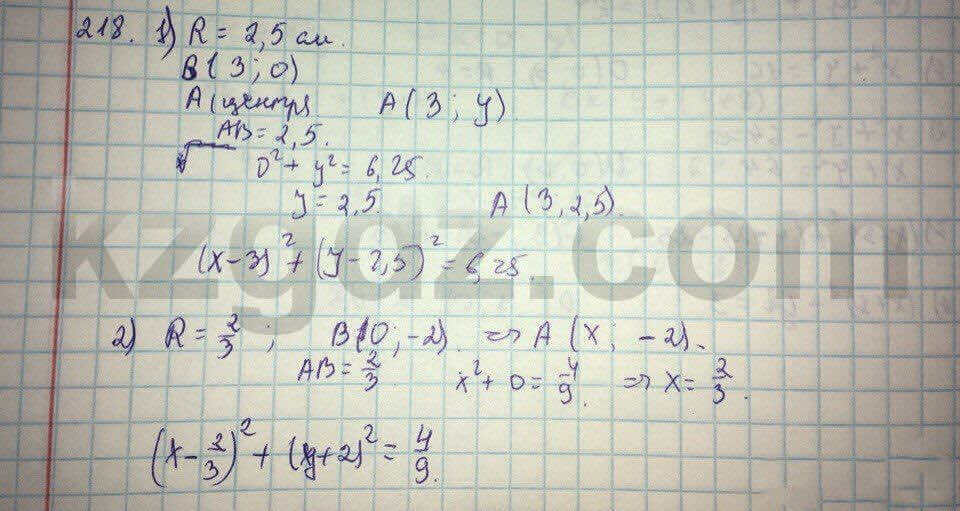 218. 1) R = 2,5 см.
B(3; 0)
A (центр) A(3; y).
AB = 2,5.
√ 0² + y² = 6,25.
y = 2,5. A(3, 2,5).
(x-3)² + (y-2,5)² = 6,25.
kzgdz.com
2) R = 2/3 ; B(0; -2). => A(x; -2).
AB = 2/3. x² + 0 = 4/9. => x = 2/3.
(x - 2/3)² + (y+2)² = 4/9.